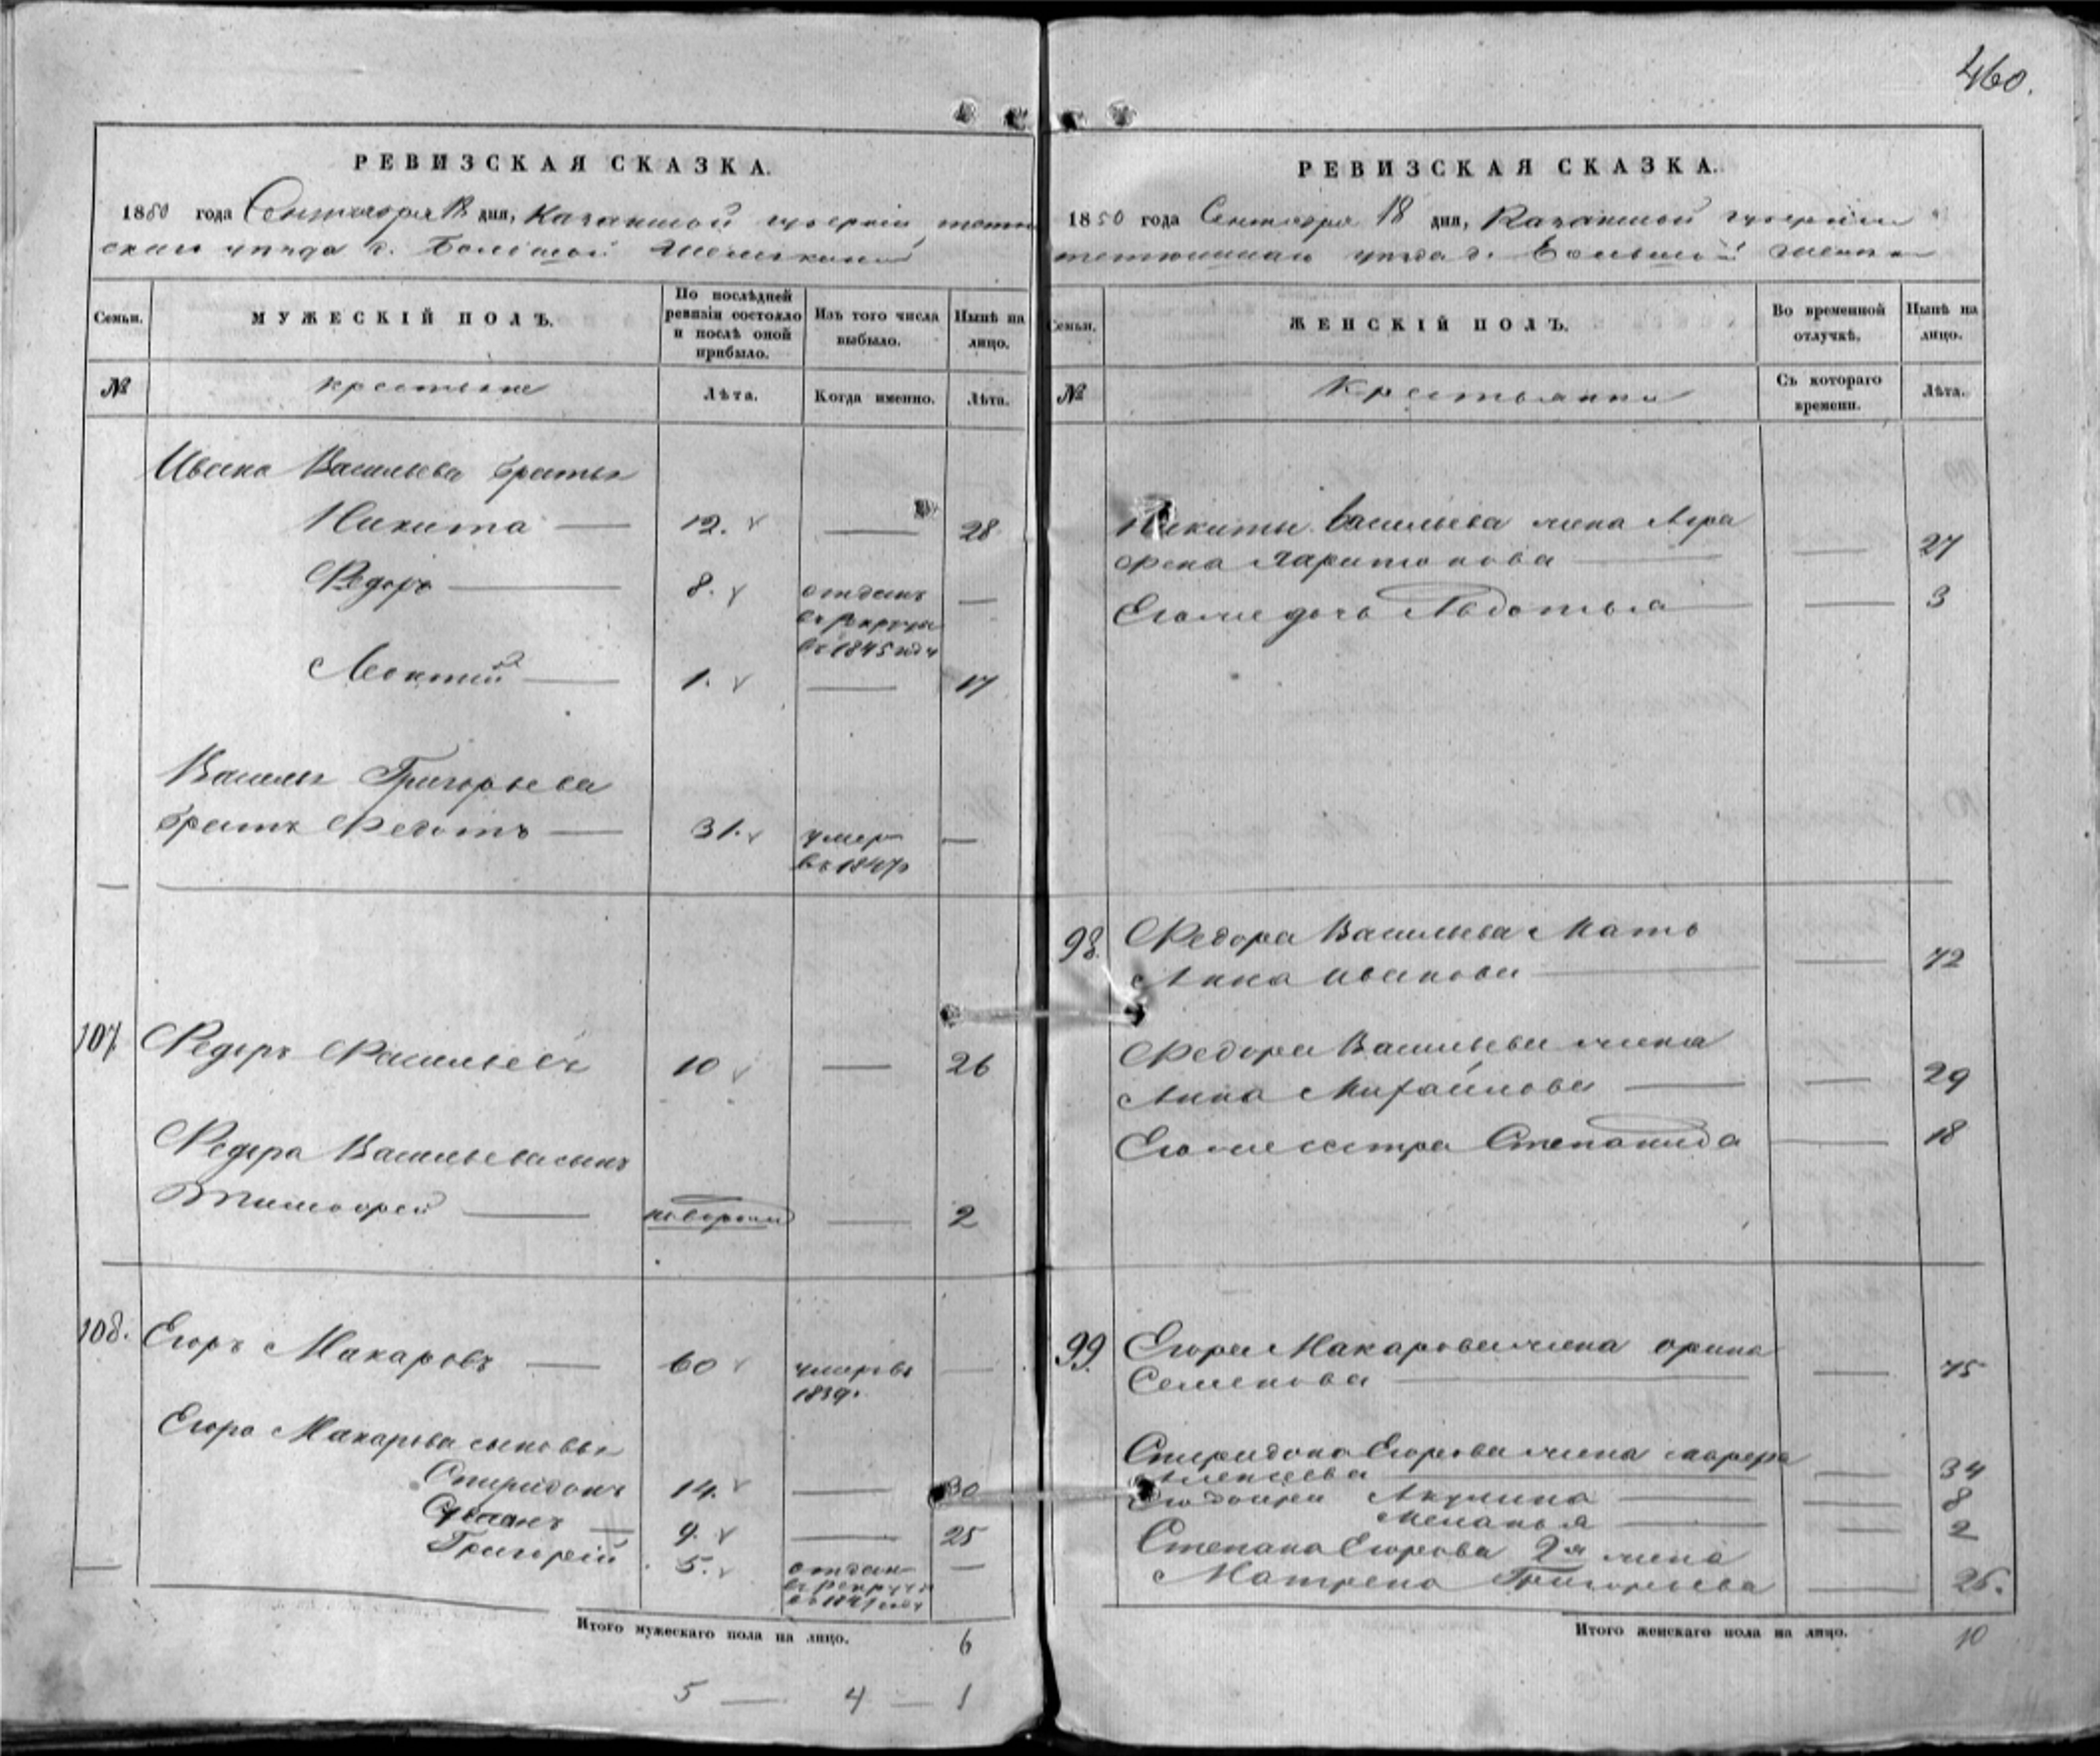 460.
РЕВИЗСКАЯ СКАЗКА.
1850 года Сентября 18 дня, Казанской губернiи тетю
скаго уѣзда д. Большой
Семьи.
МУЖЕСКIЙ ПОЛЪ.
По послѣдней ревизiи состояло и послѣ оной прибыло.
Изъ того числа выбыло.
Нынѣ на лицо.
№
крестьяне
Лѣта.
Когда именно.
Лѣта.
Ивана Васильева братья
Никита — 12. — 28
Ѳедоръ — 8. отданъ —
въ рекруты
въ 1845 году
Леонтiй — 1. — 17
Василья Григорьева
братъ Ѳедотъ — 31. умер —
въ 1847
107 Ѳедоръ Васильевъ 10 — 26
Ѳедора Васильева сынъ
Тимофей — новорожд — 2
108. Егоръ Макаровъ — 60 умеръ въ —
1839.
Егора Макарова сыновья
Спиридонъ 14. — 30
Степанъ — 9. — 25
Григорiй 5. отдан —
въ рекруты
Итого мужескаго пола на лицо. 6
5 — 4 — 1
РЕВИЗСКАЯ СКАЗКА.
1850 года Сентября 18 дня, Казанской губернiи
тетюшскаго уѣзда д. Большой
Семьи.
ЖЕНСКIЙ ПОЛЪ.
Во временной отлучкѣ.
Нынѣ на лицо.
№
Крестьянки
Съ котораго времени.
Лѣта.
Никиты Васильева жена Агра
фена Харитонова — — 27
Его же дочь Авдотья — — 3
98. Ѳедора Васильева Мать
Анна Иванова — — 72
Ѳедора Васильева жена
Анна Михайлова — — 29
Его же сестра Степанида — 18
99. Егора Макарова жена Орина
Семенова — — 75
Спиридона Егорова жена
Алексеева — — 34
Его дочери Акулина — — 8
Меланья — — 2
Степана Егорова 2я жена
Матрена Григорьева — 26.
Итого женскаго пола на лицо. 10